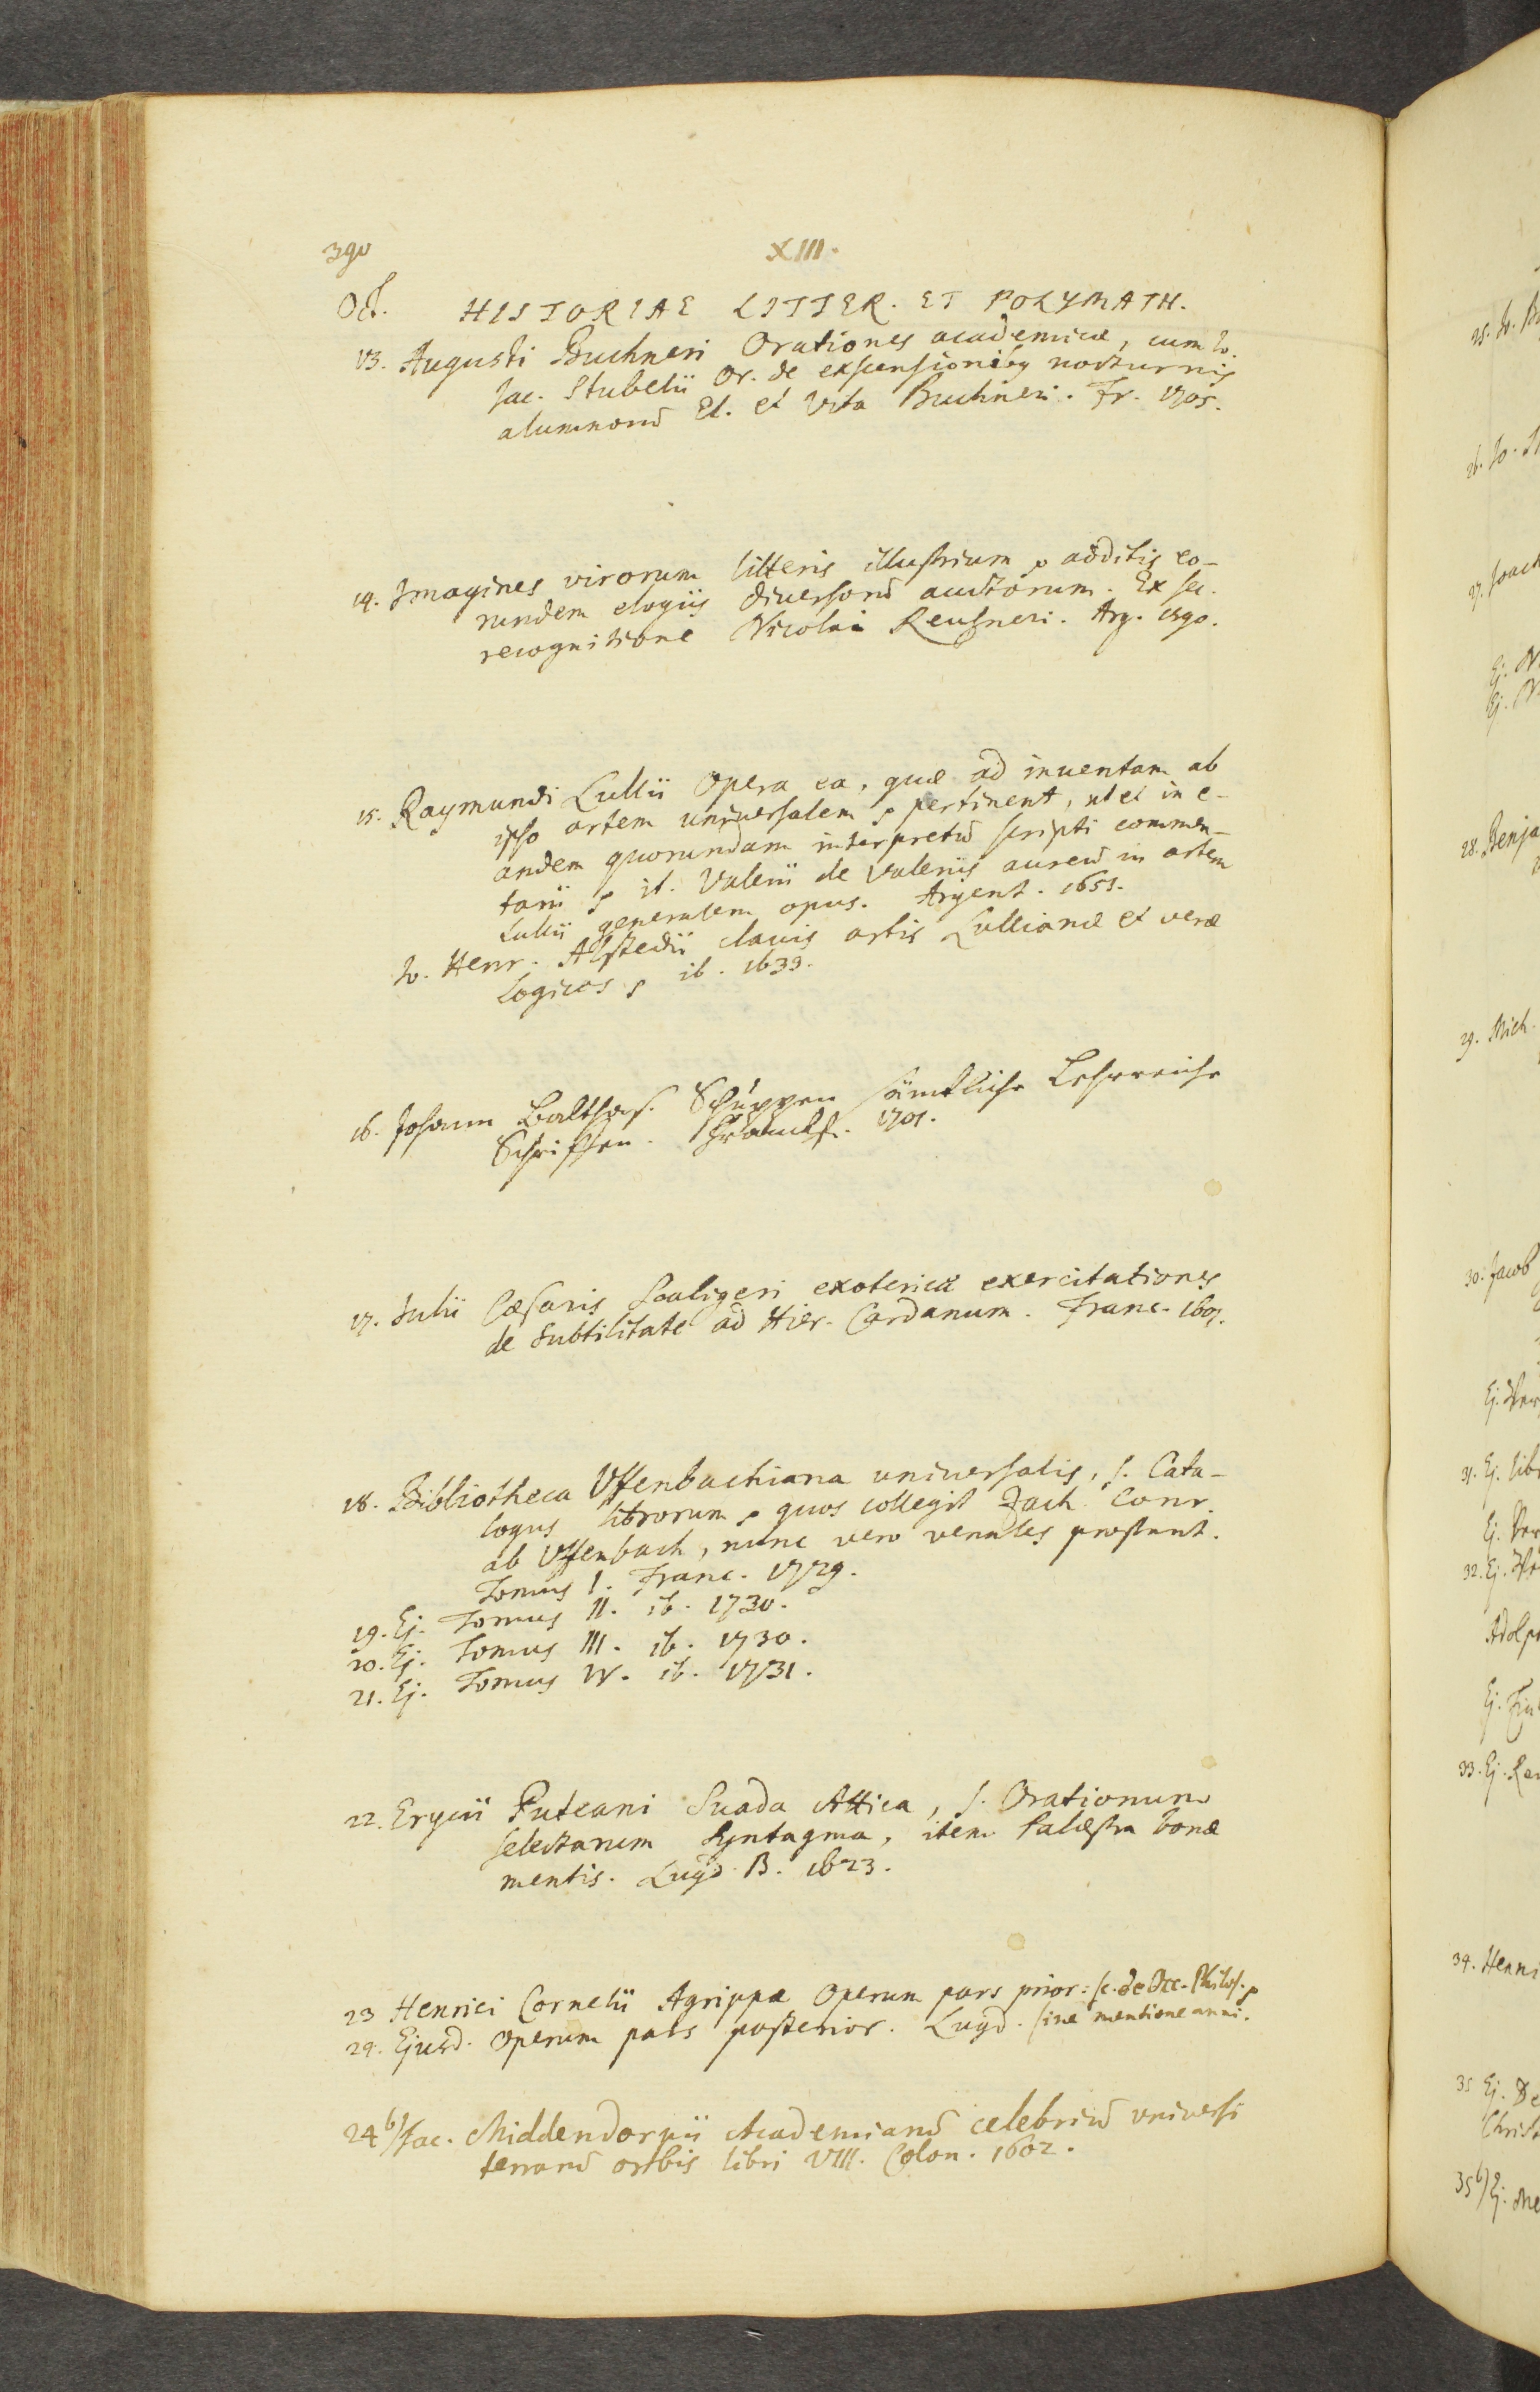 390
XIII.
Oct. HISTORIAE LITTER. ET POLYMATH.
13. Augusti Buchneri Orationes academicæ, cum Jo.
Jac. Stubelii Or. de exscensionibꝫ nocturnis
alumnorũ El. et Vita Buchneri. Fr. 1705.
14. Imagines virorum litteris illustrium ꝛc additis eo-
rundem elogiis diuersorũ auctorum. Ex sec.
recognitione Nicolai Reusneri. Arg. 1590.
15. Raymundi Lullii Opera ea, quæ ad inuentam ab
ipso artem universalem ꝛc pertinent, ut et in e-
andem quorundam interpretũ scripti commen-
tarii ꝛc it. Valerii de Valeriis aureũ in artem
Lullii generalem opus. Argent. 1651.
Jo. Henr. Alstedii clauis artis Lullianæ et veræ
Logicos ꝛc ib. 1633.
16. Johann Balthas. Schuppen sämtliche Lehrreiche
Schrifften. Franckf. 1701.
17. Julii Cæsaris Scaligeri exotericæ exercitationes
de Subtilitate ad Hier. Cardanum. Franc. 1607.
18. Bibliotheca Uffenbachiana universalis, s. Cata-
logus librorum ꝛc quos collegit Zach. Conr.
ab Uffenbach, nunc vero venales prostant.
Tomus I. Franc. 1729.
19. Ej. Tomus II. ib. 1730.
20. Ej. Tomus III. ib. 1730.
21. Ej. Tomus IV. ib. 1731.
22. Erycii Puteani Suada Attica, s. Orationum
selectarum Syntagma, item Palæstra bonæ
mentis. Lugd. B. 1623.
23 Henrici Cornelii Agrippæ Operum pars prior: sc. de Occ. Philos. ꝛc
24. Ejusd. Operum pars posterior. Lugd. sine mentione anni.
24 b) Jac. Middendorpii Academiarũ celebriũ universi
terrarũ orbis libri VIII. Colon. 1602.
28. Benja
29. Mich.
30. Jacob
31. Ej. lib
32. Ej.
Adolp
33. Ej.
34. Henri
35 Ej. De
Christ
35 b) Ej. Me